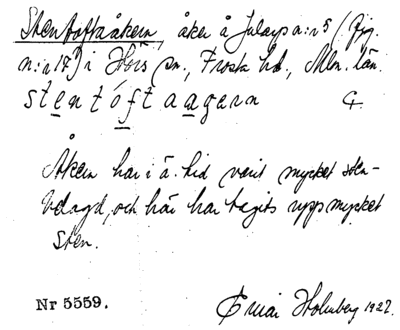 Stentoftaåkern, åker å Jularp a:n 5 (
n:r 17) i Hörs sn., Frosta hd., Mlm. län.
stentóftaagarn
Åkern har i ä. tid varit mycket sten-
belagd, och här har tagits upp mycket
sten.
Nr 5559.
Holmberg 1927.